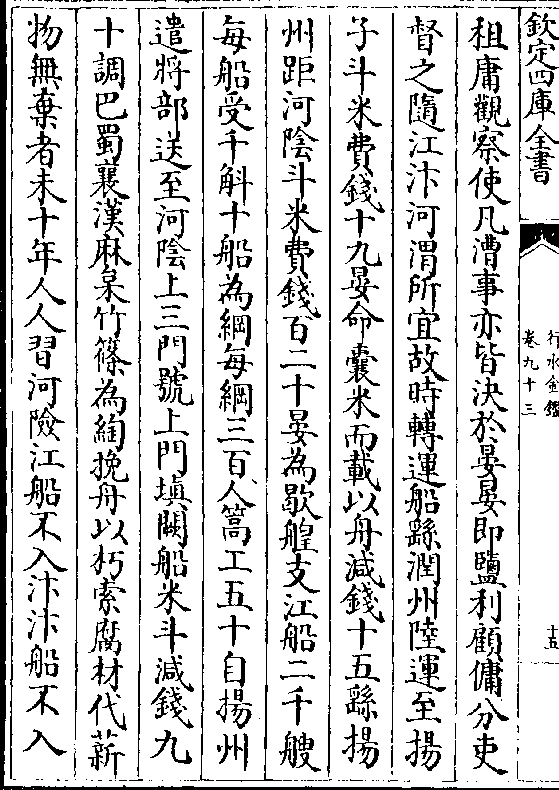 欽定四庫全書
行水金鑑
卷九十三
十五
租庸觀察使凡漕事亦皆決於晏晏即鹽利顧傭分吏
督之隨江汴河渭所宜故時轉運船繇潤州陸運至揚
子斗米費錢十九晏命囊米而載以舟減錢十五繇揚
州距河陰斗米費錢百二十晏為歇艎支江船二千艘
每船受千斛十船為綱每綱三百人篙工五十自揚州
遣將部送至河陰上三門號上門填闕船米斗減錢九
十調巴蜀襄漢麻枲竹篠為綯挽舟以朽索腐材代薪
物無棄者未十年人人習河險江船不入汴汴船不入